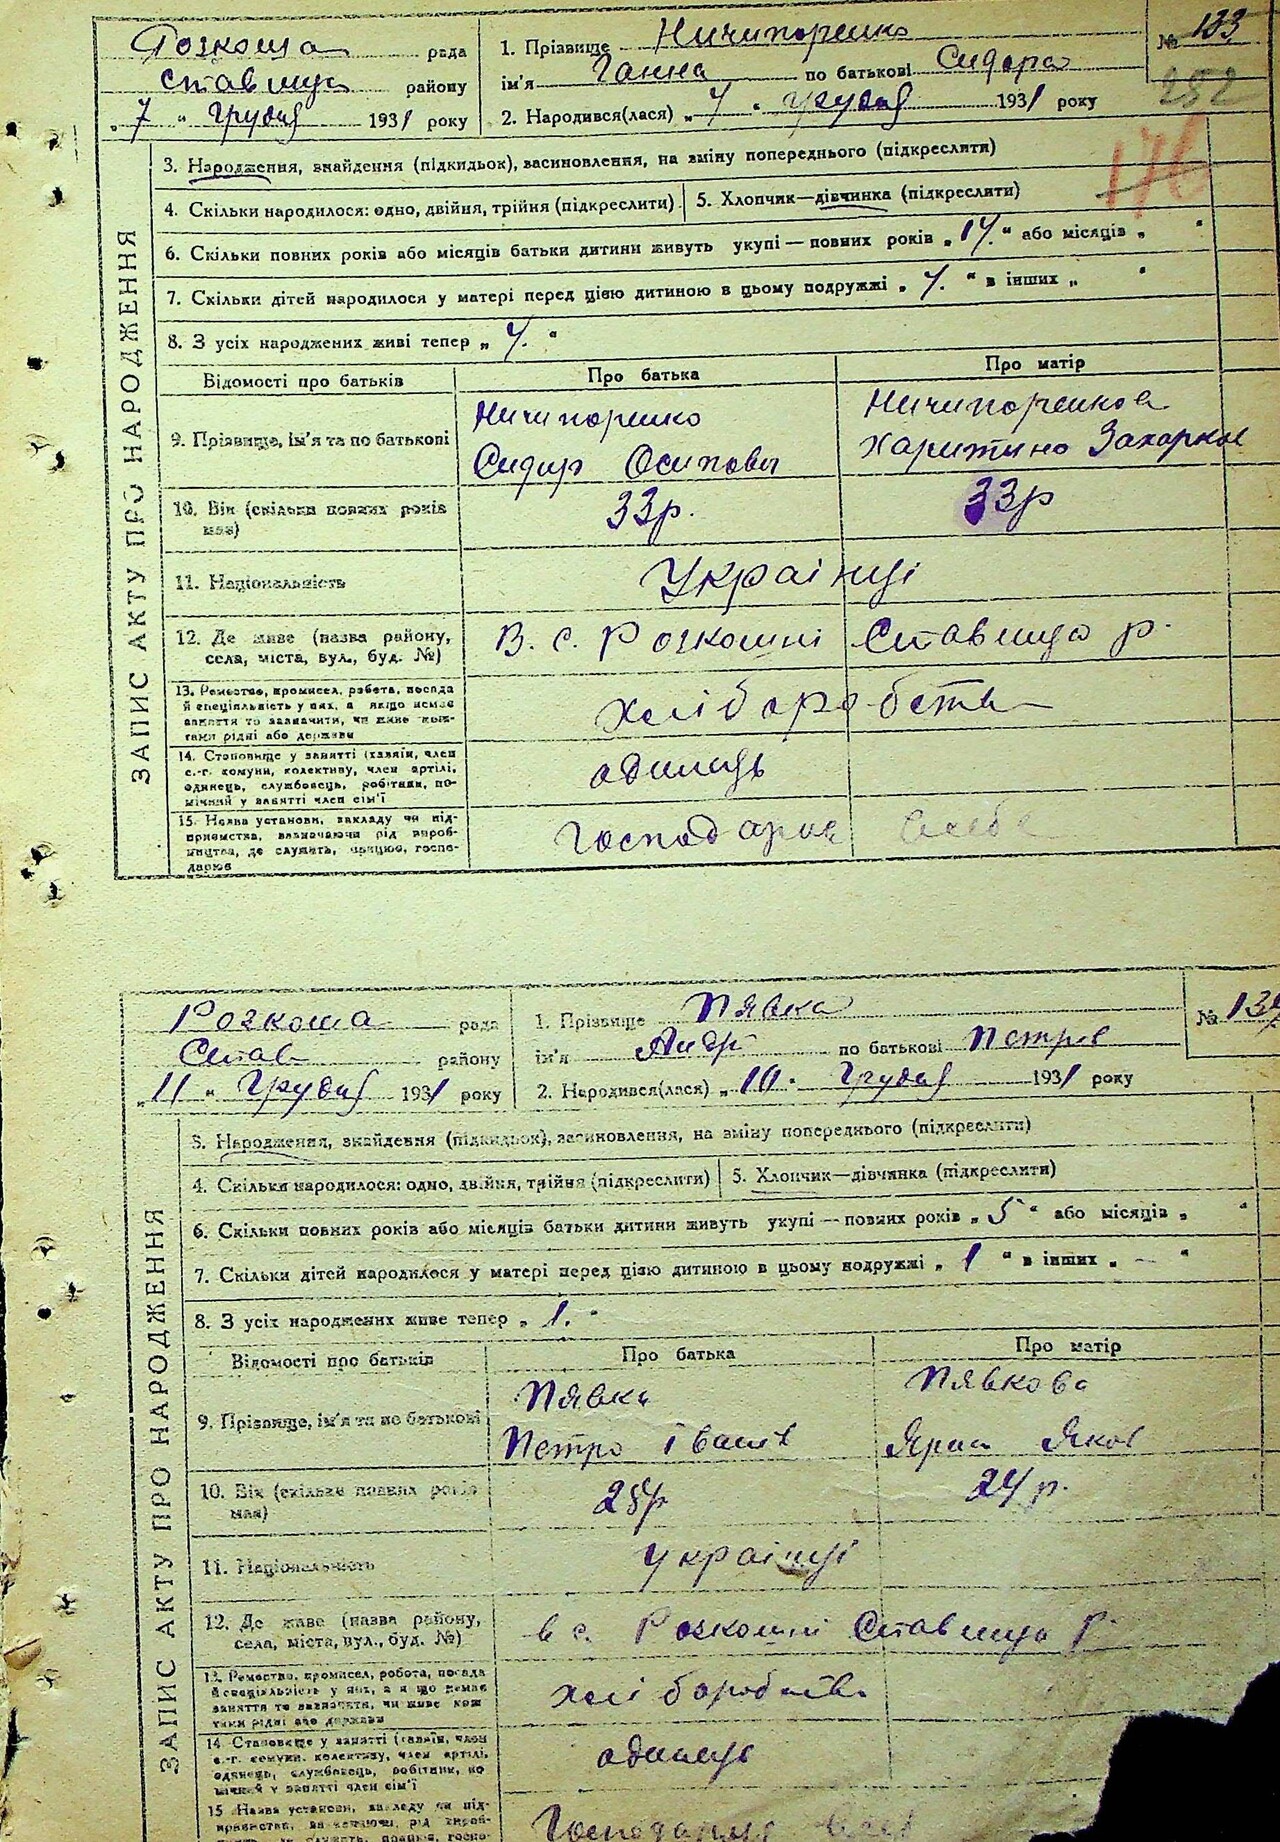 Розкоша рада
Ставищ району
„7“ Грудня 1931 року
1. Прізвище Ничипоренко
ім'я Ганна по батькові Сидора
2. Народився(лася) „7“ грудня 1931 року
№ 133
252
176
ЗАПИС АКТУ ПРО НАРОДЖЕННЯ
3. Народження, знайдення (підкидьок), засиновлення, на зміну попереднього (підкреслити)
4. Скільки народилося: одно, двійня, трійня (підкреслити)
5. Хлопчик—дівчинка (підкреслити)
6. Скільки повних років або місяців батьки дитини живуть укупі — повних років „14.“ або місяців „ “
7. Скільки дітей народилося у матері перед цією дитиною в цьому подружжі „4.“ в інших „ “
8. З усіх народжених живі тепер „4.“
Відомості про батьків
Про батька
Про матір
9. Прізвище, ім'я та по батькові
Ничипоренко
Сидир Осипови
Ничипоренкова
Харитино Захарков
10. Вік (скільки повних років має)
33р.
33р
11. Національність
Українці
12. Де живе (назва району,
села, міста, вул., буд. №)
В. с. Розкошні Ставища р.
13. Ремество, промисел, робота, посада
й спеціяльність у них, а якщо немає
заняття то зазначити, чи живе кош-
тами рідні або держави
хліборобство
14. Становище у занятті (хазяїн, член
с.-г. комуни, колективу, член артілі,
одинець, службовець, робітник, по-
мічний у занятті член сім'ї
одинець
15. Назва установи, закладу чи під-
приємства, визначаючи рід вироб-
ництва, де служить, працює, госпо-
дарює
Господарює
Розкоша рада
Став району
„11“ Грудня 1931 року
1. Прізвище Пявка
ім'я Андр по батькові Петров
2. Народився(лася) „10“ Грудня 1931 року
№
ЗАПИС АКТУ ПРО НАРОДЖЕННЯ
3. Народження, знайдення (підкидьок), засиновлення, на зміну попереднього (підкреслити)
4. Скільки народилося: одно, двійня, трійня (підкреслити)
5. Хлопчик—дівчинка (підкреслити)
6. Скільки повних років або місяців батьки дитини живуть укупі — повних років „5“ або місяців „ “
7. Скільки дітей народилося у матері перед цією дитиною в цьому подружжі „1“ в інших „—“
8. З усіх народжених живе тепер „1.“
Відомості про батьків
Про батька
Про матір
9. Прізвище, ім'я та по батькові
Пявка
Петро Іванів
Пявкова
Яков
10. Вік (скільки повних років має)
24 р.
11. Національність
Українці
12. Де живе (назва району,
села, міста, вул., буд. №)
в с. Розкошні Ставища р
13. Ремество, промисел, робота, посада
й спеціяльність у них, а якщо немає
заняття то зазначити, чи живе кош-
тами рідні або держави
хліборобство
14. Становище у занятті (хазяїн, член
с.-г. комуни, колективу, член артілі,
одинець, службовець, робітник, по-
мічний у занятті член сім'ї
одинець
15. Назва установи, закладу чи під-
приємства, визначаючи рід вироб-